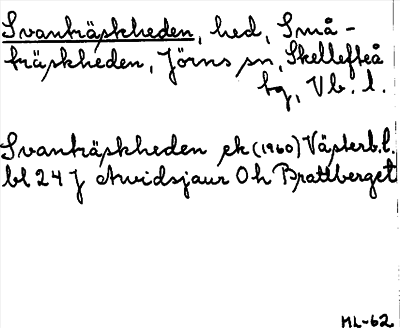 Svanträskheden, hed, Små-
träskheden, Jörns sn, Skellefteå
tg, Vb. l.
Svanträskheden ek (1960) Västerb. l.
bl 24 J Arvidsjaur Oh Brattberget
ML-62